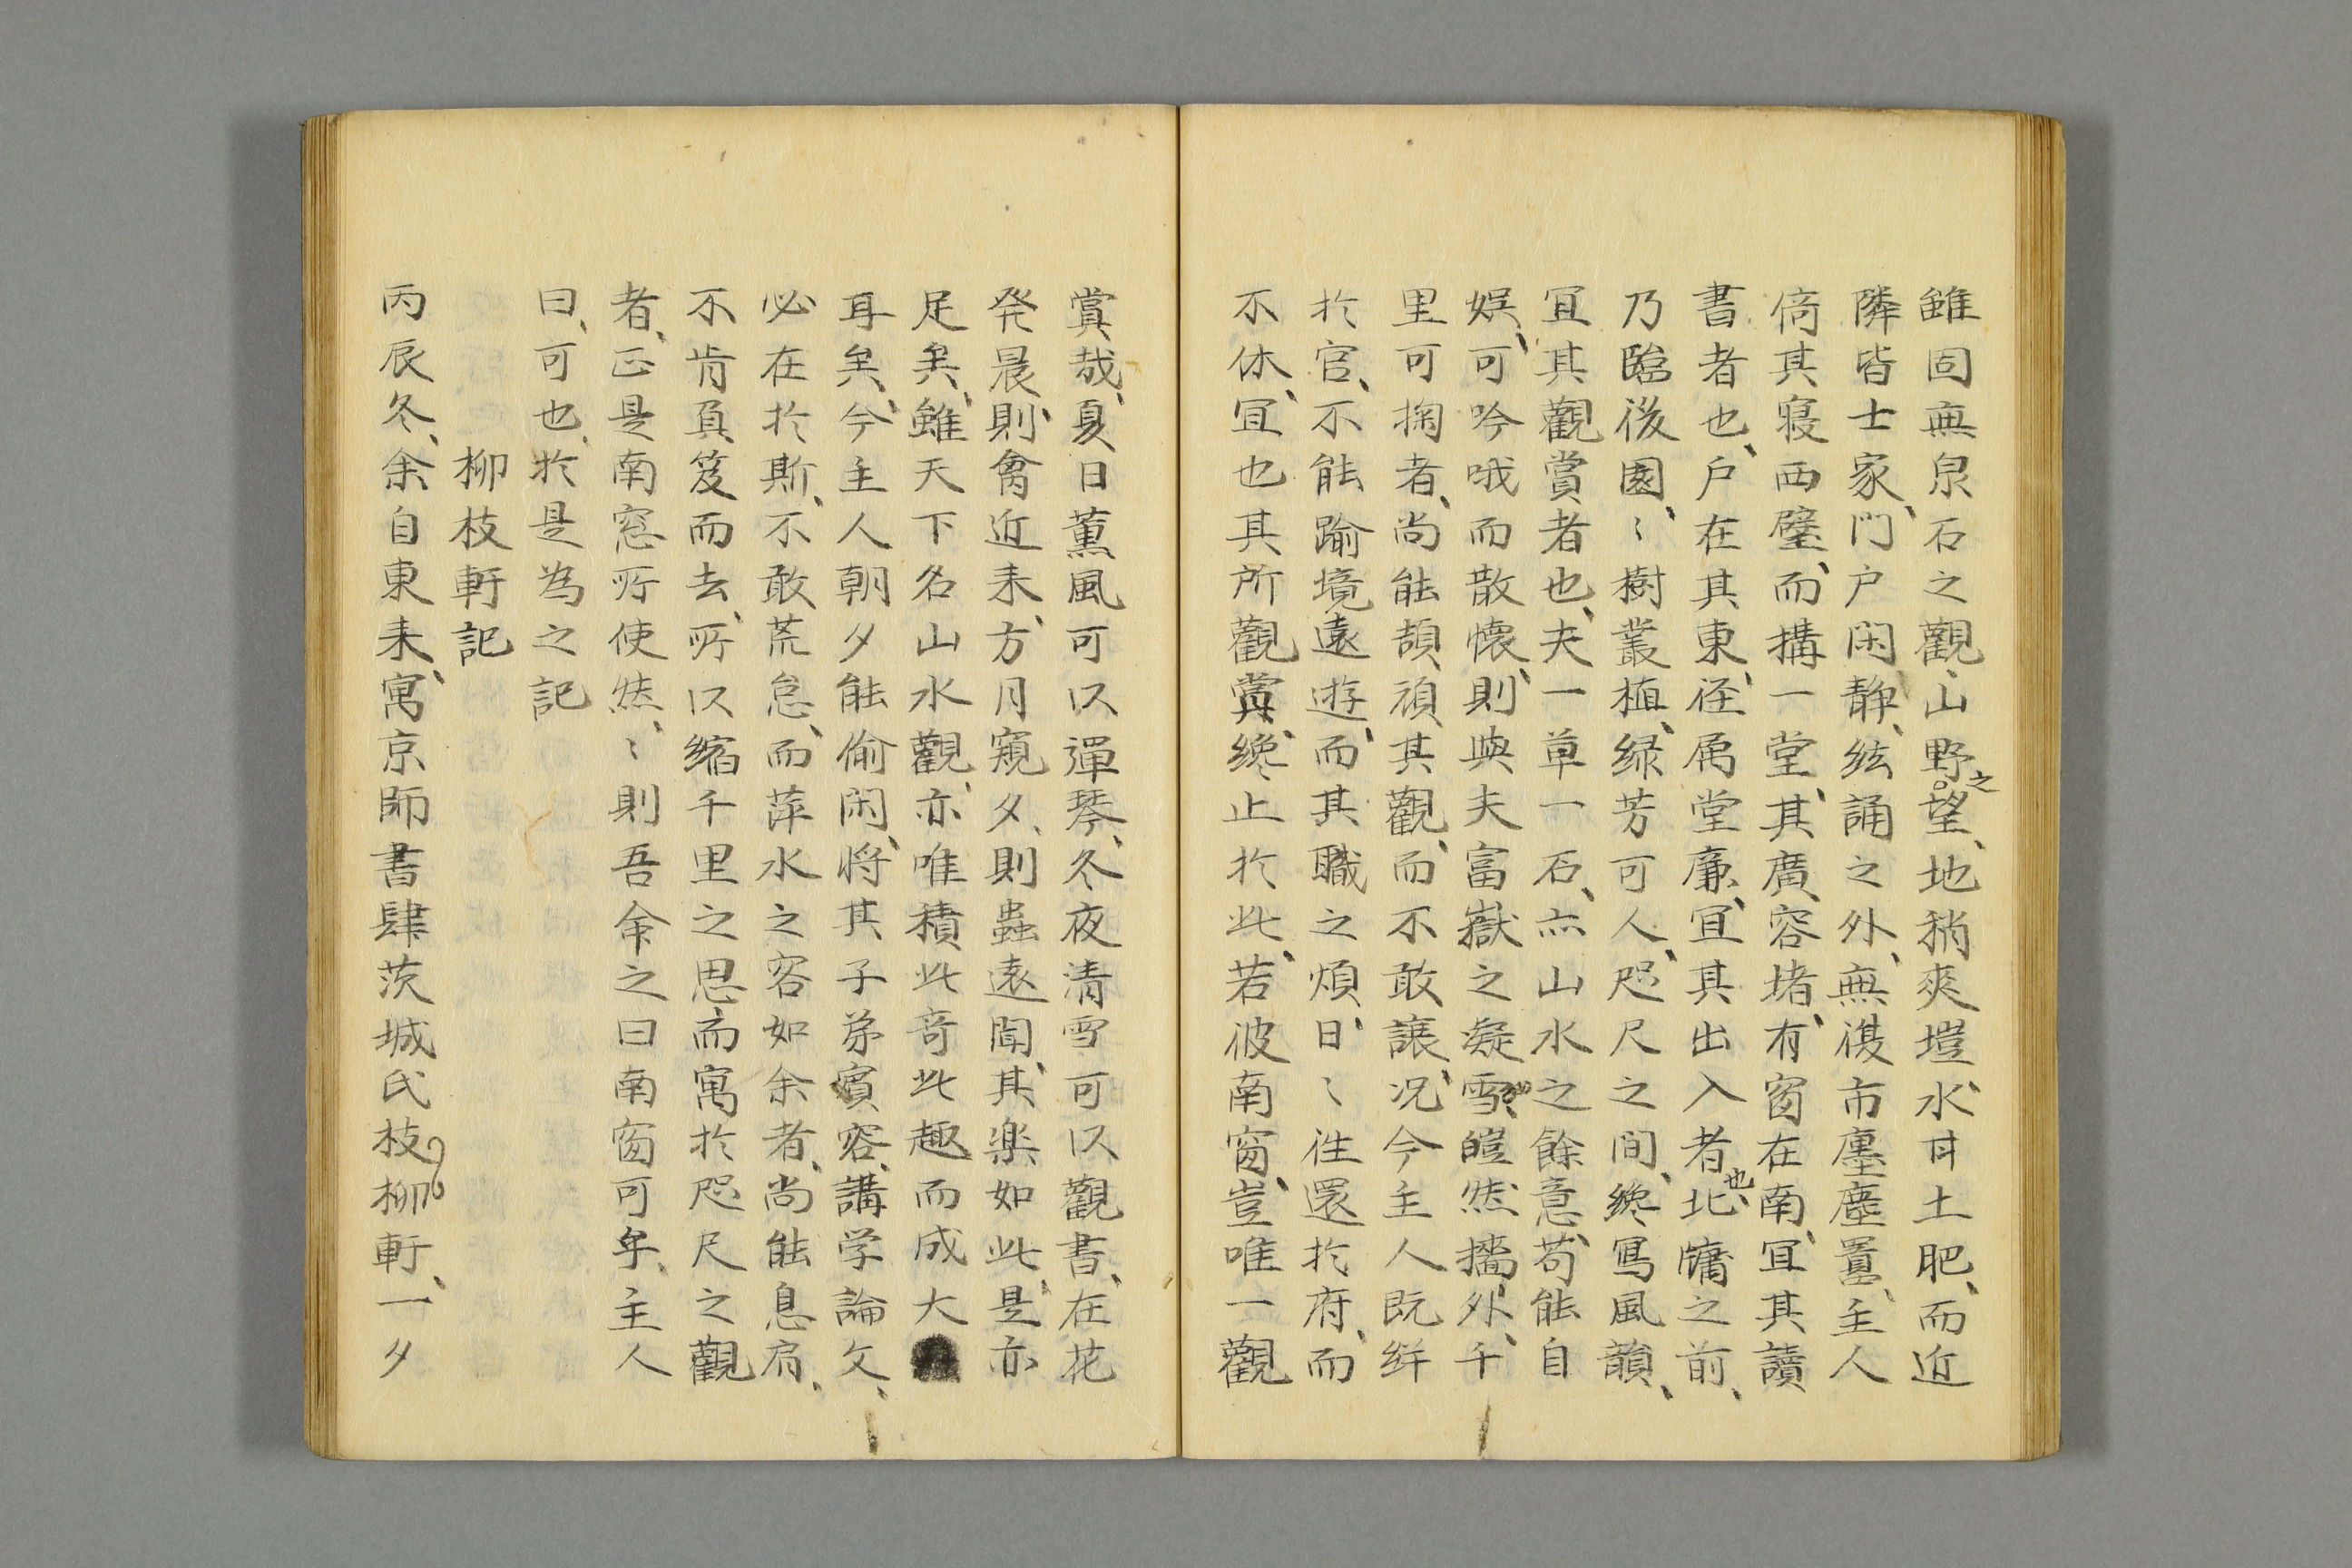 雖固無泉石之觀、山野之望、地稍爽塏、水甘土肥、而近
隣皆士家、門戸閑静、絃誦之外、無復市廛塵囂、主人
倚其寝西壁、而搆一堂、其廣容堵、有窗在南、冝其讀
書者也、戸在其東、径属堂廉、冝其出入者也、北牖之前、
乃臨後園、〻樹叢植、緑芳可人、咫尺之间、纔写風韻、
冝其觀賞者也、夫一草一石、亦山水之餘意、苟能自
娯、可吟哦而散懐、則與夫富嶽之凝雪皚然、墻外千
里可掬者、尚能頡頏其觀、而不敢譲、况今主人既絆
於官、不能踰境遠遊、而其職之煩、日〻往還於府、而
不休、冝也其所觀賞、纔止於此、若彼南窗、豈唯一觀
賞哉、夏日薫風可以弾琴、冬夜清雪可以觀書、在花
発晨、則禽近来、方月窺夕、則蟲遠聞、其楽如此、是亦
足矣、雖天下名山水觀、亦唯積此奇此趣而成大
耳矣、今主人朝夕能偷閑、将其子弟賓容、講学論文、
必在於斯、不敢荒怠、而萍水之客如余者、尚能息肩、
不肯負笈而去、所以縮千里之思、而寓於咫尺之觀
者、正是南窓所使然、〻則吾命之曰南窗可乎、主人
曰、可也、於是為之記
柳枝軒記
丙辰冬、余自東来、寓京師書肆茨城氏枝柳軒、一夕